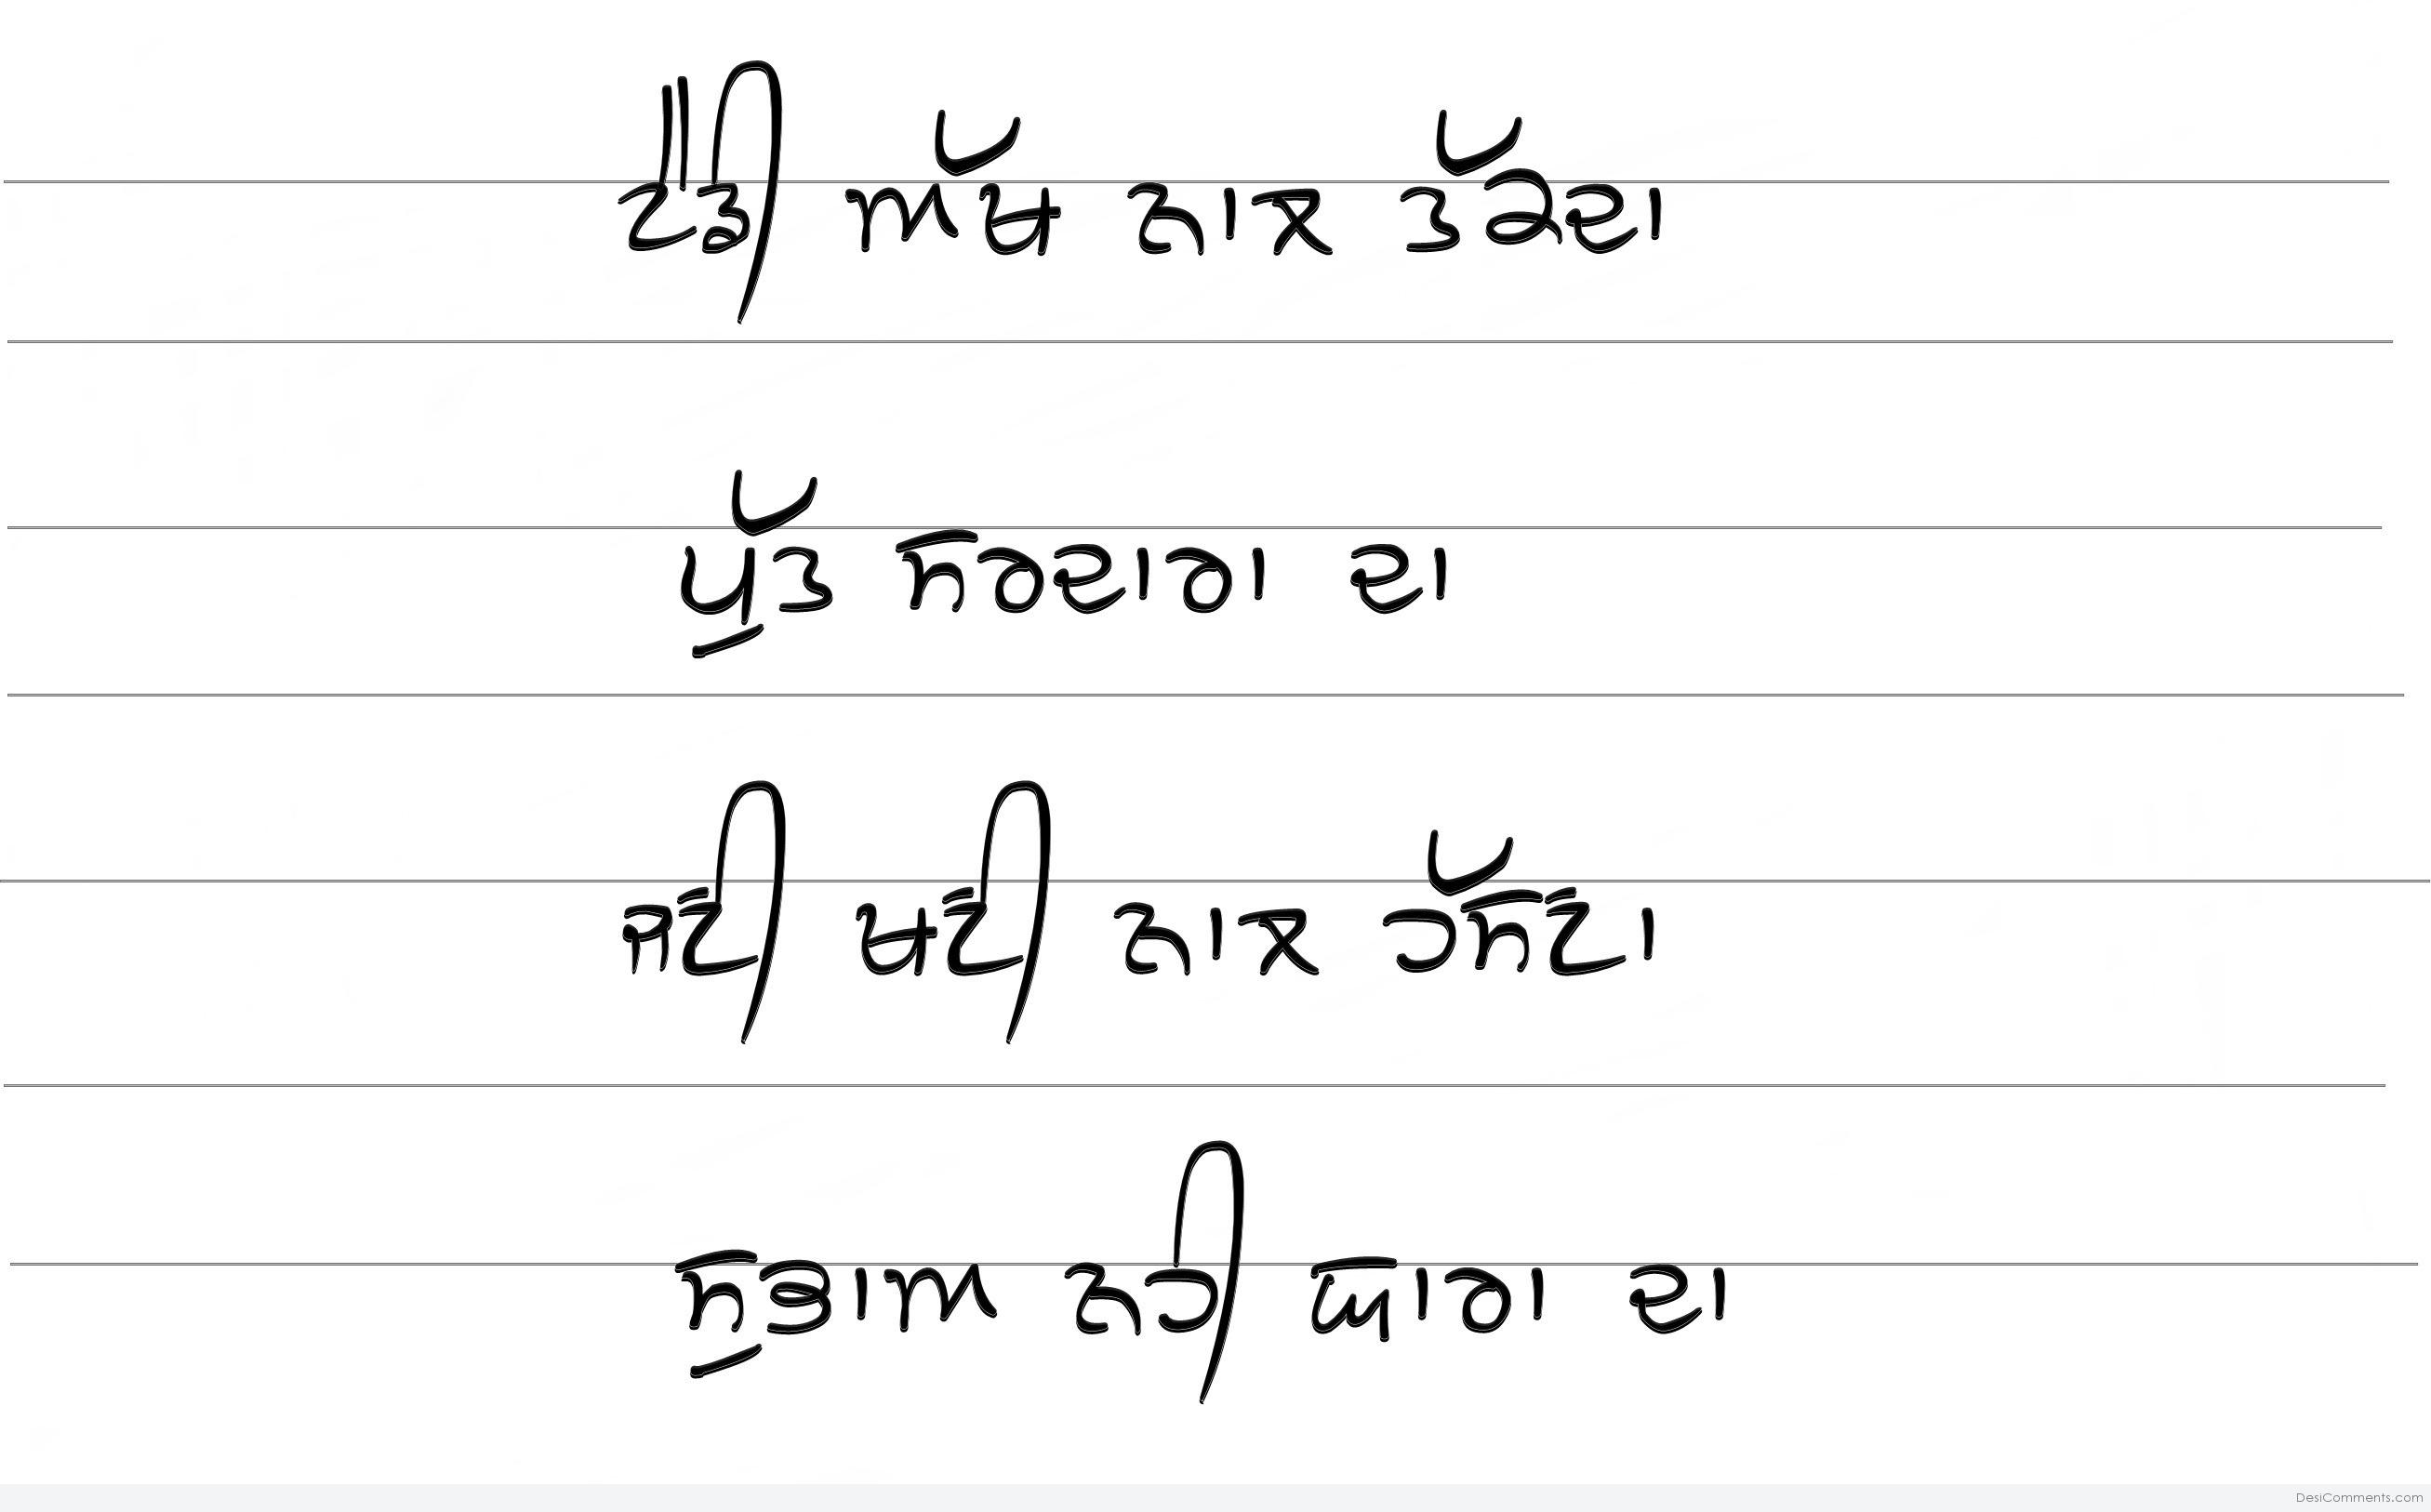 ਟੈੜੀ ਅੱਖ ਨਾਲ ਤੱਕਦਾ
ਪੁੱਤ ਸਰਦਾਰਾ ਦਾ
ਜਣੀ ਖਣੀ ਨਾਲ ਹੱਸਣਾ
ਸੁਭਾਅ ਨਹੀ ਯਾਰਾ ਦਾ
DesiComments.com